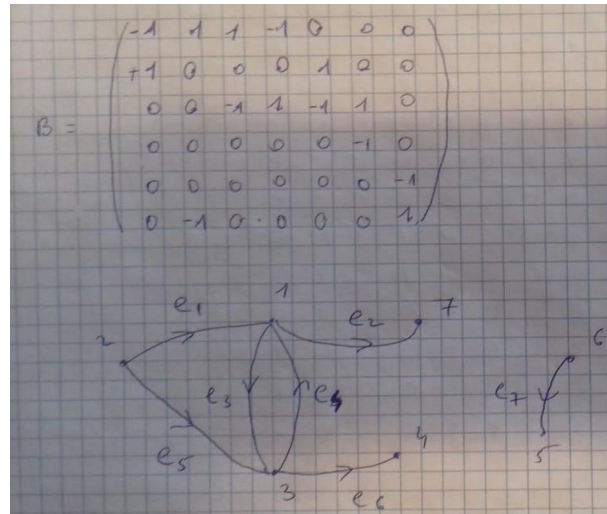 -1 1 1 -1 0 0 0
+1 0 0 0 1 0 0
0 0 -1 1 -1 1 0
B =
0 0 0 0 0 -1 0
0 0 0 0 0 0 -1
0 -1 0 0 0 0 1
1
e1
e2
7
2
6
e3
e4
e7
4
e5
5
3
e6